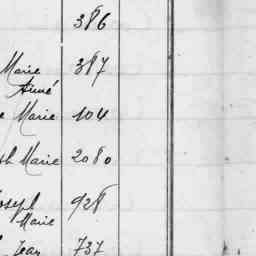 386
Marie 387
Aimé
e Marie 104
ph Marie 2080
Joseph 928
Marie
Jean 737